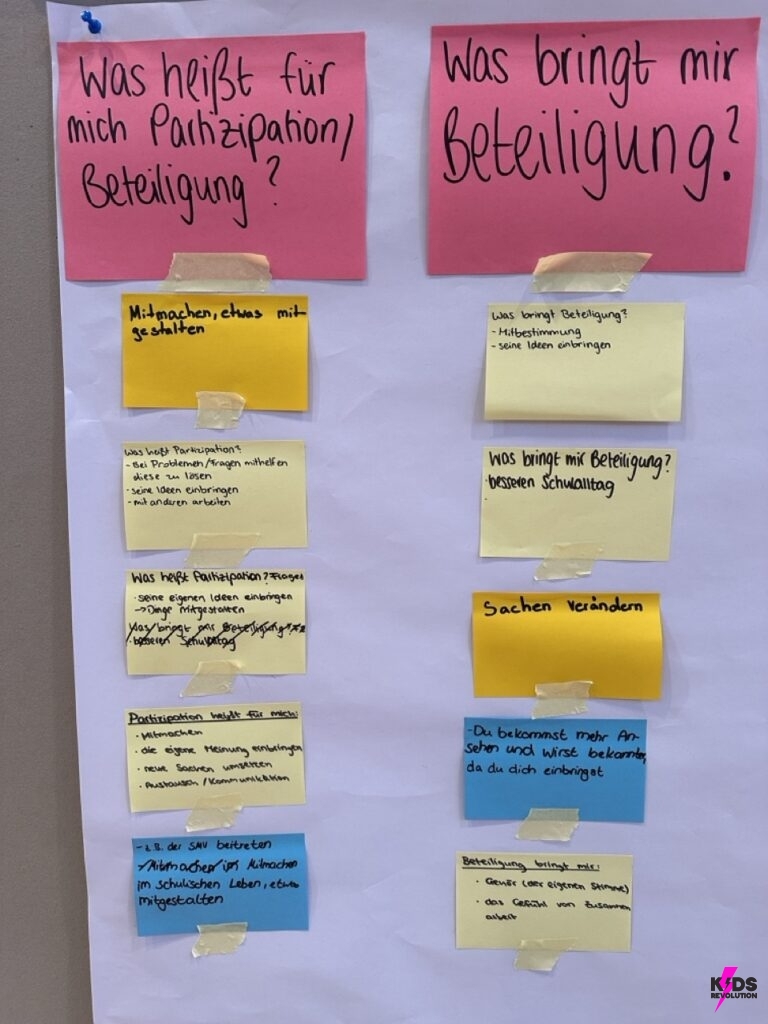 Was heißt für
mich Partizipation/
Beteiligung?
Mitmachen, etwas mit-
gestalten
Was heißt Partizipation?
- Bei Problemen/Fragen mithelfen
diese zu lösen
- seine Ideen einbringen
- mit anderen arbeiten
Was heißt Partizipation?
· seine eigenen Ideen einbringen
→ Dinge mitgestalten
Was bringt mir Beteiligung?
· besseren Schulalltag
Partizipation heißt für mich:
· Mitmachen
· die eigene Meinung einbringen
· neue Sachen umsetzen
· Austausch/Kommunikation
- z.B. der SMV beitreten
- Mitmachen im Mitmachen
im schulischen Leben, etwas
mitgestalten
Was bringt mir
Beteiligung?
Was bringt Beteiligung?
- Mitbestimmung
- seine Ideen einbringen
Was bringt mir Beteiligung?
· besseren Schulalltag
Sachen verändern
- Du bekommst mehr An-
sehen und wirst bekannter,
da du dich einbringst
Beteiligung bringt mir:
· Gehör (der eigenen Stimme)
· das Gefühl von Zusammen
arbeit
KIDS
REVOLUTION